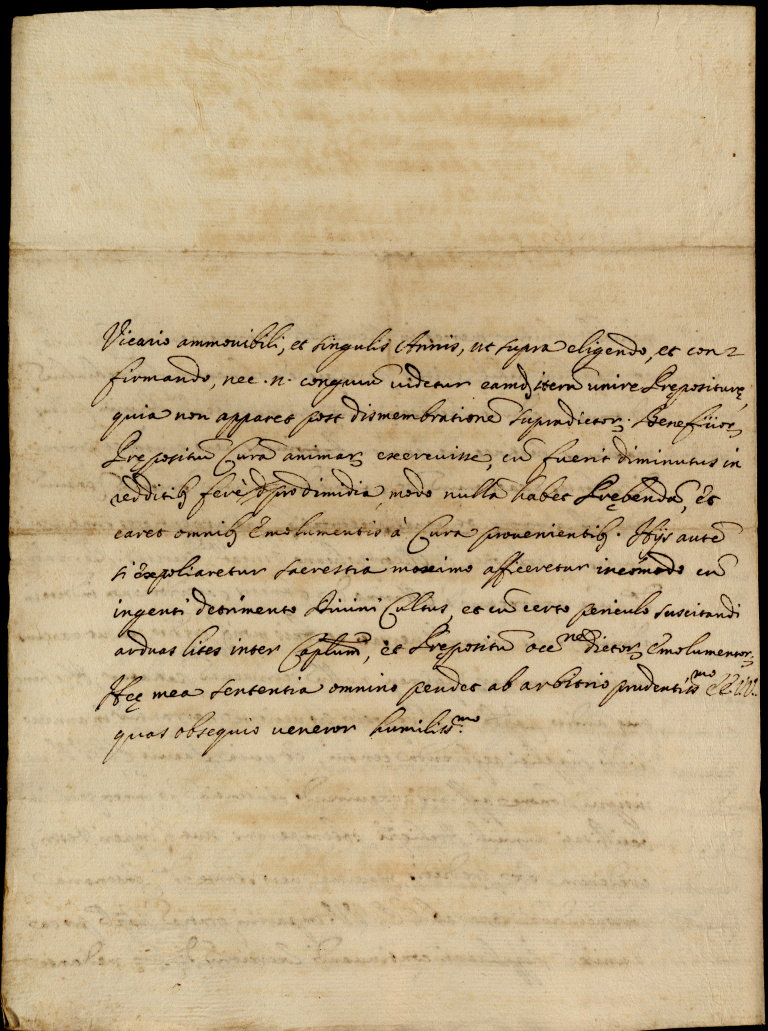 Vicario ammovibili, et singulis Annis, ut supra eligendo, et con=
firmando, nec .n. congruũ uidetur eamd͂ iterũ unire Prępositurę,
quia non apparet post dismembrationẽ supradictorꝝ Benefiiorꝝ
Prępositũ Curã animarꝝ exercuisse, cũ fuerit diminutus in
redditibꝫ ferè dimidia, modo nullã habet Prębendã, et
caret omnibꝫ Emolumentis à Cura prouenientibꝫ. Hijs autẽ
si expoliaretur sacrestia maximo afficeretur incomodo cũ
ingenti detrimento Diuini Cultus, et cũ certo periculo suscitandi
arduas lites inter Caplum, et Prępositũ occ.ne dictorꝝ Emolumentorꝝ.
Hęc mea sententia omnino pendet ab arbitrio prudentiss.mo EE. VV.
quas obsequio ueneror humiliss.mo